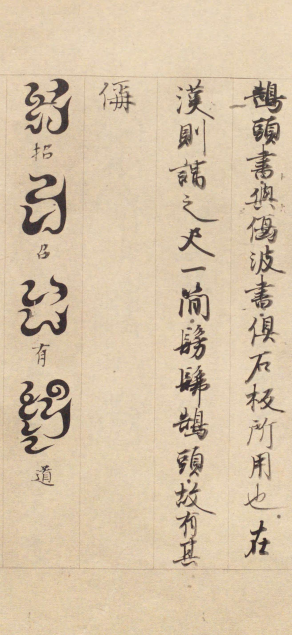 鵠頭書與偃波書俱石板所用也在
漢則謂之尺一簡髣髴鵠頭故有其
偁
招
召
有
道